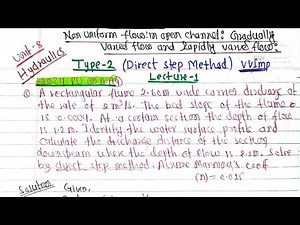 Non Uniform flow in open channel: Gradually
Varied flow and Rapidly varied flow:
Unit-8
Hydraulics
Type-2 (Direct step Method) VVImp
Lecture-1
Q. A rectangular flume 2.0m wide carries discharge of
the rate of 2 m³/s. The bed slope of the flume
is 0.0004. At a certain section the depth of flow
is 1.2m. Identify the water surface profile and
Calculate the distance of the section
downstream where the depth of flow is
by direct step method. Assume Manning's coeff
(n) =
Solution Given,